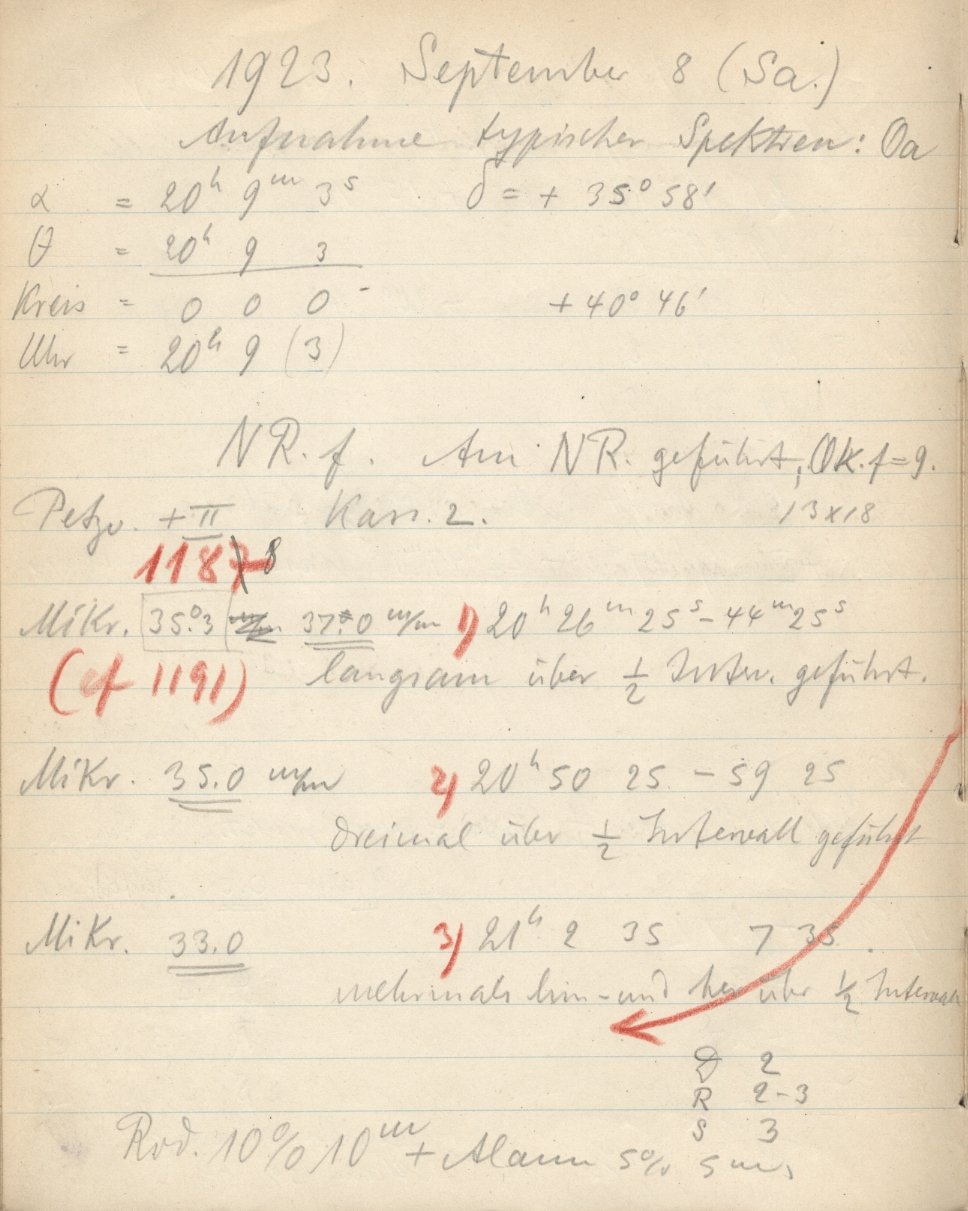 1923. September 8 (Sa.)
Aufnahme typischer Spektren: Oa
α = 20ʰ 9ᵐ 3ˢ δ = + 35° 58'
θ = 20ʰ 9 3
Kreis = 0 0 0 + 40° 46'
Uhr = 20ʰ 9 (3)
NR. f. Am NR. geführt, Ok. f = 9.
Petzv. + II Kass. 2. 13x18
1187 8
Mikr. 35.3 37.0 m/m 1) 20ʰ 26ᵐ 25ˢ - 44ᵐ 25ˢ
(cf 1191) langsam über ½ Interv. geführt.
Mikr. 35.0 m/m 2) 20ʰ 50 25 - 59 25
dreimal über ½ Intervall geführt
Mikr. 33.0 3) 21ʰ 2 35 7 35.
mehrmals hin- und her über ½ Intervall
D 2
R 2-3
S 3
Rod. 10% 10ᵐ + Alaun 5% 5 m.